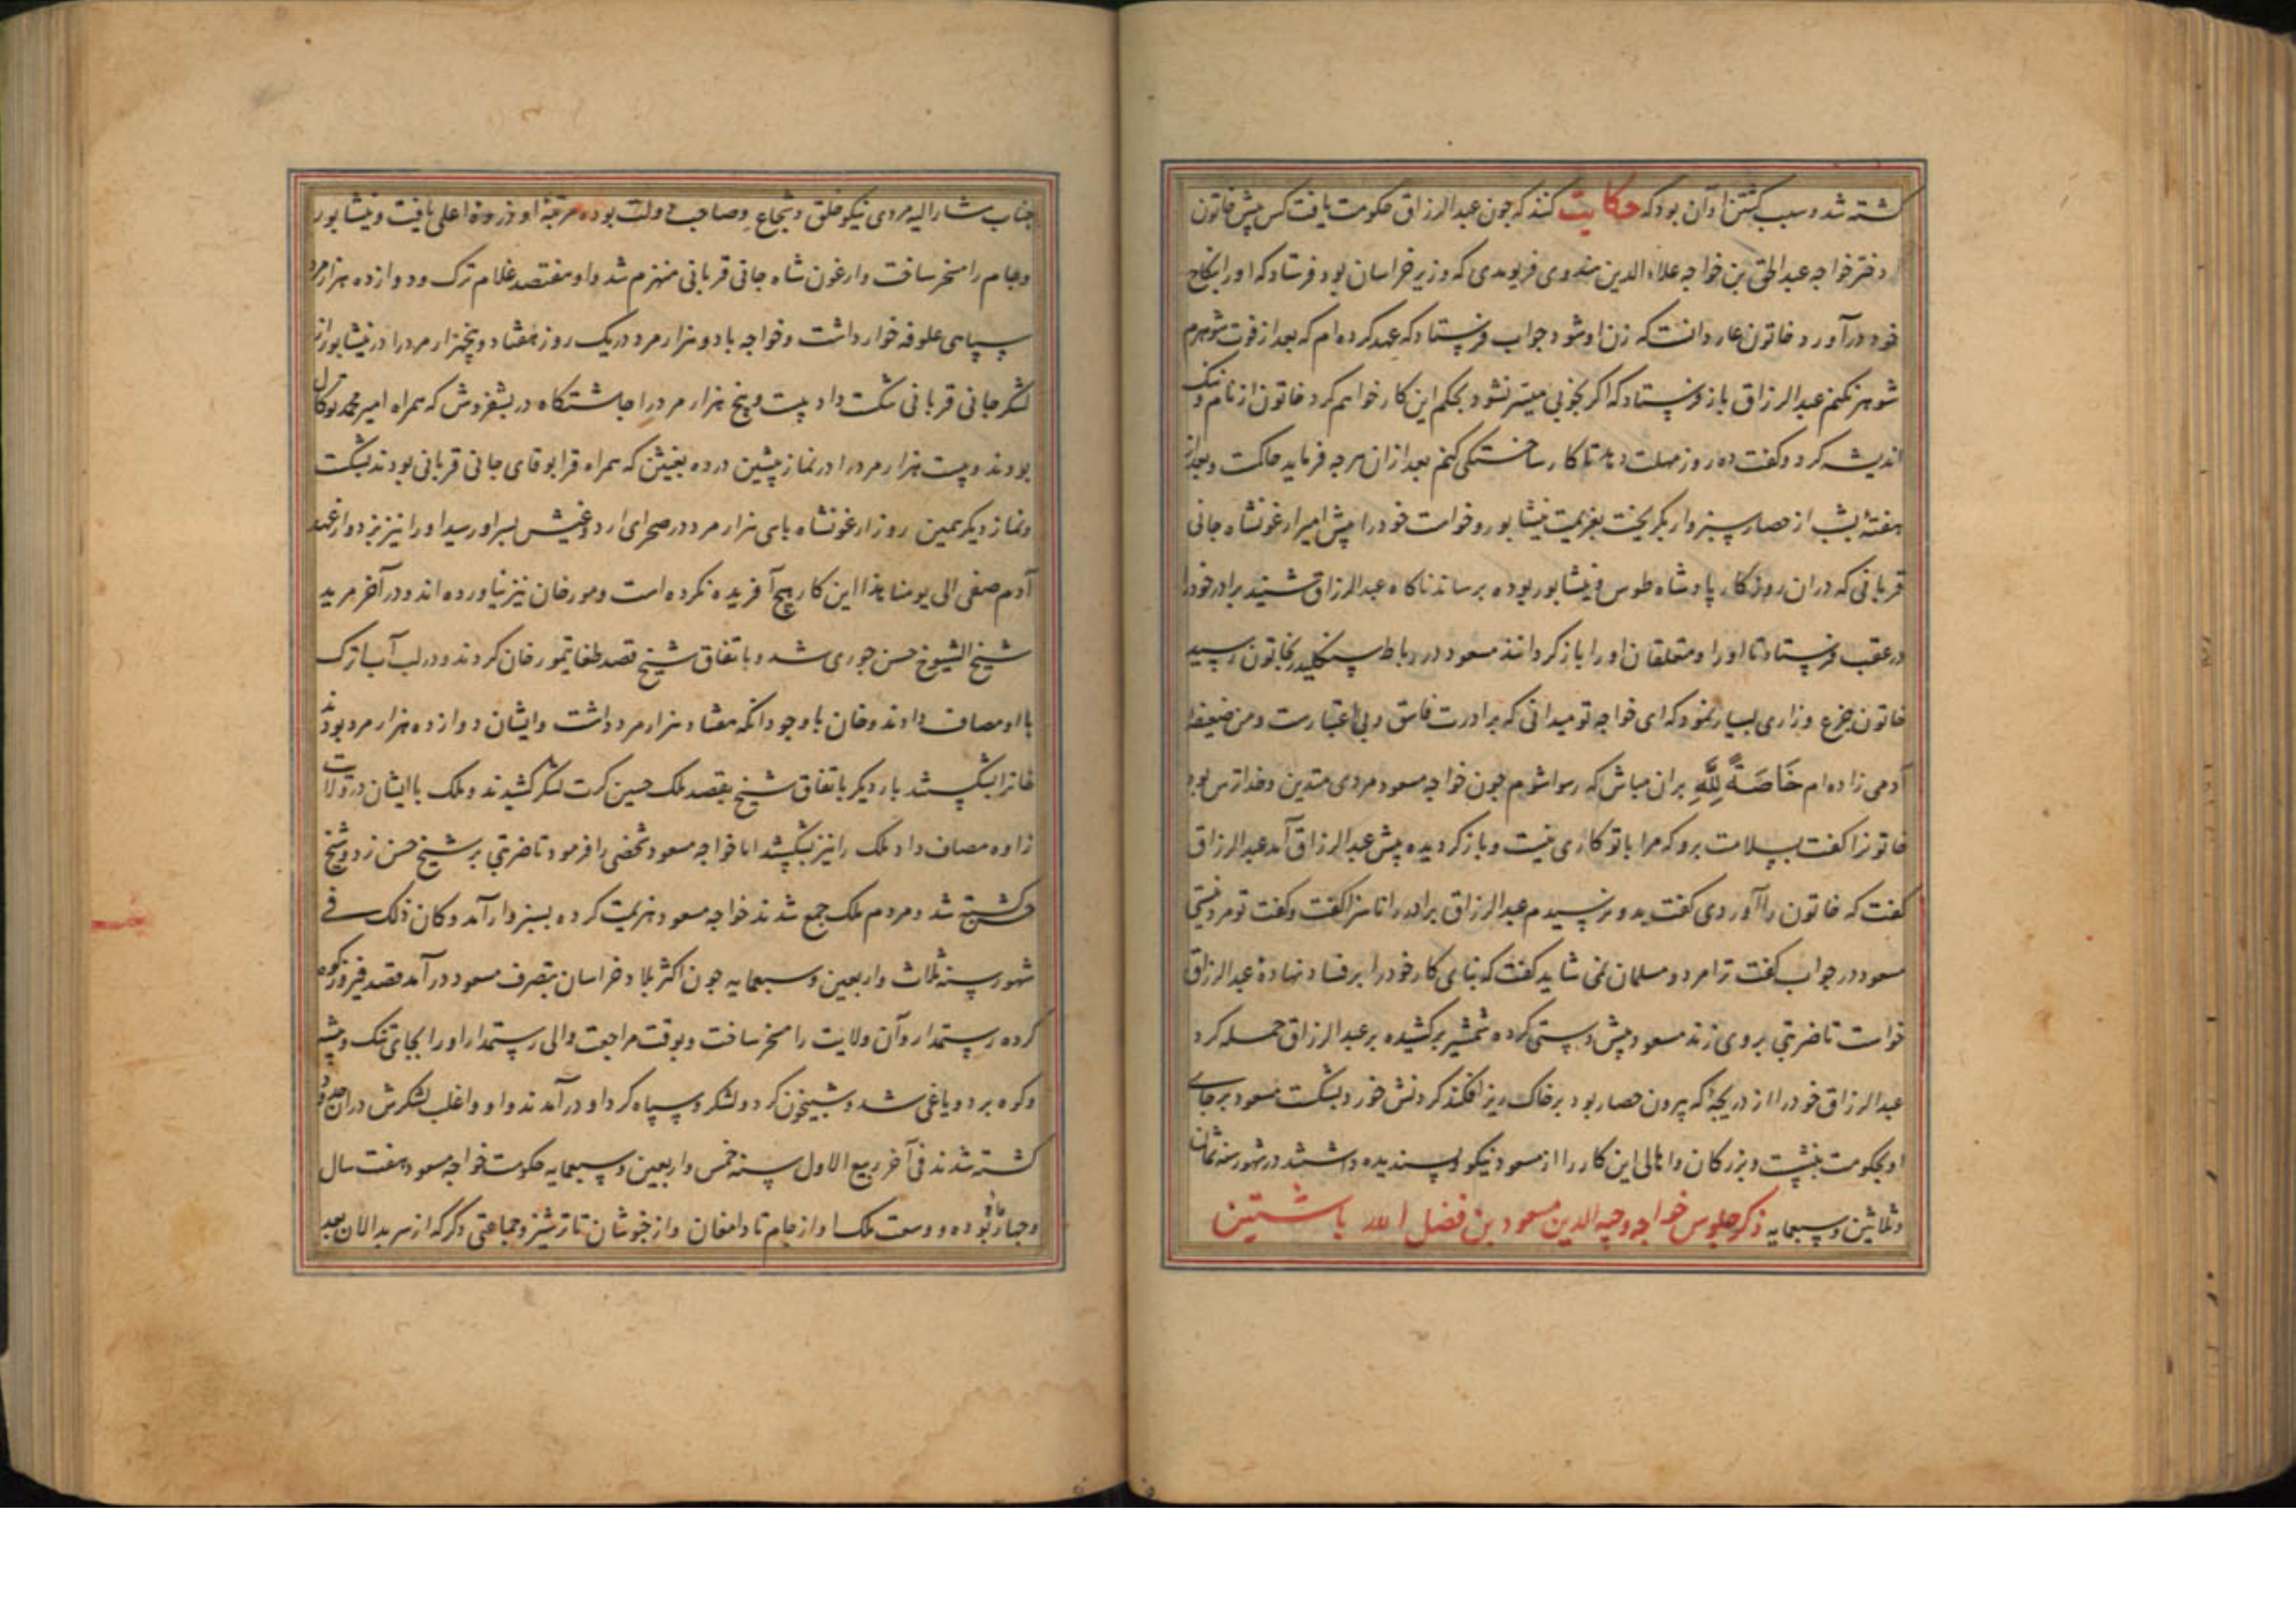 کشته شد و سبب کشتن او آن بود که حکایت کنند که چون عبدالرزاق حکومت یافت کس پیش خاتون
دختر خواجه عبدالحق بن خواجه علاءالدین هندوی فریومدی که وزیر خراسان بود فرستاد که او را بنکاح
خود درآورد خاتون عار دانست که زن او شود جواب فرستاد که عهد کرده‌ام که بعد از فوت شوهرم
شوهر نکنم عبدالرزاق باز فرستاد که اگر بخوبی میسر نشود بحکم این کار خواهم کرد خاتون از نام و ننک
اندیشه کرد و کفت ده روز مهلت تا کار ساختکی کنم بعد از ان هرچه فرماید حاکمست و بعد از
هفتهٔ بشب از حصار سبزوار بکریخت بعزیمت نیشابور و خواست خود را پیش امیر ارغونشاه جانی
قربانی که دران روزکار پادشاه طوس و نیشابور بوده برساند ناکاه عبدالرزاق شنید برادر خود را
در عقب فرستاد تا او را و متعلقان او را باز کردانند مسعود در رباط سنکلیدر بخاتون رسید
خاتون جزع و زاری بسیار نمود که ای خواجه تو میدانی که برادرت فاسق و بی اعتبارست و من ضعیفهٔ
آدمی زاده‌ام خَاصَةً لِلّٰهِ بران مباش که رسوا شوم چون خواجه مسعود مردی متدین و خداترس بود
خاتونرا کفت بسلامت برو که مرا با تو کاری نیست و باز کردیده پیش عبدالرزاق آمد عبدالرزاق
کفت که خاتون را آوردی کفت بدو نرسیدم عبدالرزاق برادر را ناسزا کفت و کفت تو مرد نیستی
مسعود در جواب کفت ترا مرد و مسلمان نمی شاید کفت که بنای کار خود را بر فساد نهادهٔ عبدالرزاق
خواست تا ضربتی بر وی زند مسعود پیش دستی کرده شمشیر برکشیده بر عبدالرزاق حمله کرد
عبدالرزاق خود را از دریچهٔ که بیرون حصار بود بر خاک ریز افکند کردنش خورد بشکست مسعود بر جای
او بحکومت بنشست و بزرکان و اهالی این کار را از مسعود نیکو و پسندیده داشتند در شهور سنه ثمان
و ثلاثین و سبعمایه ذکر جلوس خواجه وجیه الدین مسعود بن فضل الله باشتین
جناب مشار الیه مردی نیکو خلق و شجاع و صاحب دولت بوده مرتبهٔ او ذروهٔ اعلی یافت و نیشابور
و جام را مسخر ساخت و ارغون شاه جانی قربانی منهزم شد و او هفتصد غلام ترک و دوازده هزار مرد
سپاهی علوفه خوار داشت و خواجه با دو هزار مرد در یک روز هفتاد و پنجهزار مرد را در نیشابور از
لشکر جانی قربانی شکست داد بیست و پنج هزار مرد را چاشتکاه در بشفروش که همراه امیر محمد توکال
بودند و بیست هزار مرد را در نماز پیشین در ده بغیشن که همراه قرا بوقای جانی قربانی بودند بشکست
و نماز دیکر همین روز ارغونشاه با سی هزار مرد در صحرای اردوغیش بسر او رسید او را نیز بزد و از عهد
آدم صفی الی یومنا هذا این کار هیچ آفریده نکرده است و مورخان نیز نیاورده‌اند و در آخر مرید
شیخ الشیوخ حسن جوری شد و باتفاق شیخ قصد طغاتیمور خان کردند و در لب آب اترک
با او مصاف دادند و خان با وجود آنکه هفتاد هزار مرد داشت و ایشان دوازده هزار مرد بودند
خانرا بشکستند بار دیکر باتفاق شیخ بقصد ملک حسین کرت لشکر کشیدند و ملک با ایشان در ولایت
زاوه مصاف داد ملک را نیز بشکستند اما خواجه مسعود شخصی را فرمود تا ضربتی بر شیخ حسن زد و شیخ
حسن کشته شد و مردم ملک جمع شدند خواجه مسعود هزیمت کرده بسبزوار آمد و کان ذلک فی
شهور سنه ثلاث و اربعین و سبعمایه چون اکثر بلاد خراسان بتصرف مسعود درآمد قصد فیروزکوه
کرده رستمدار و آن ولایت را مسخر ساخت و بوقت مراجعت والی رستمدار او را بجای تنک و بیشه
و کوه برد و یاغی شد و شبیخون کرد و لشکر و سپاه کرد او درآمدند و او و اغلب لشکرش دران
کشته شدند فی آخر ربیع الاول سنه خمس و اربعین و سبعمایه حکومت خواجه مسعود هفت سال
و چهار ماه بوده و وسعت ملک او از جام تا دامغان و از خبوشان تا ترشیز و جماعتی دکر که از سربدالان بعد